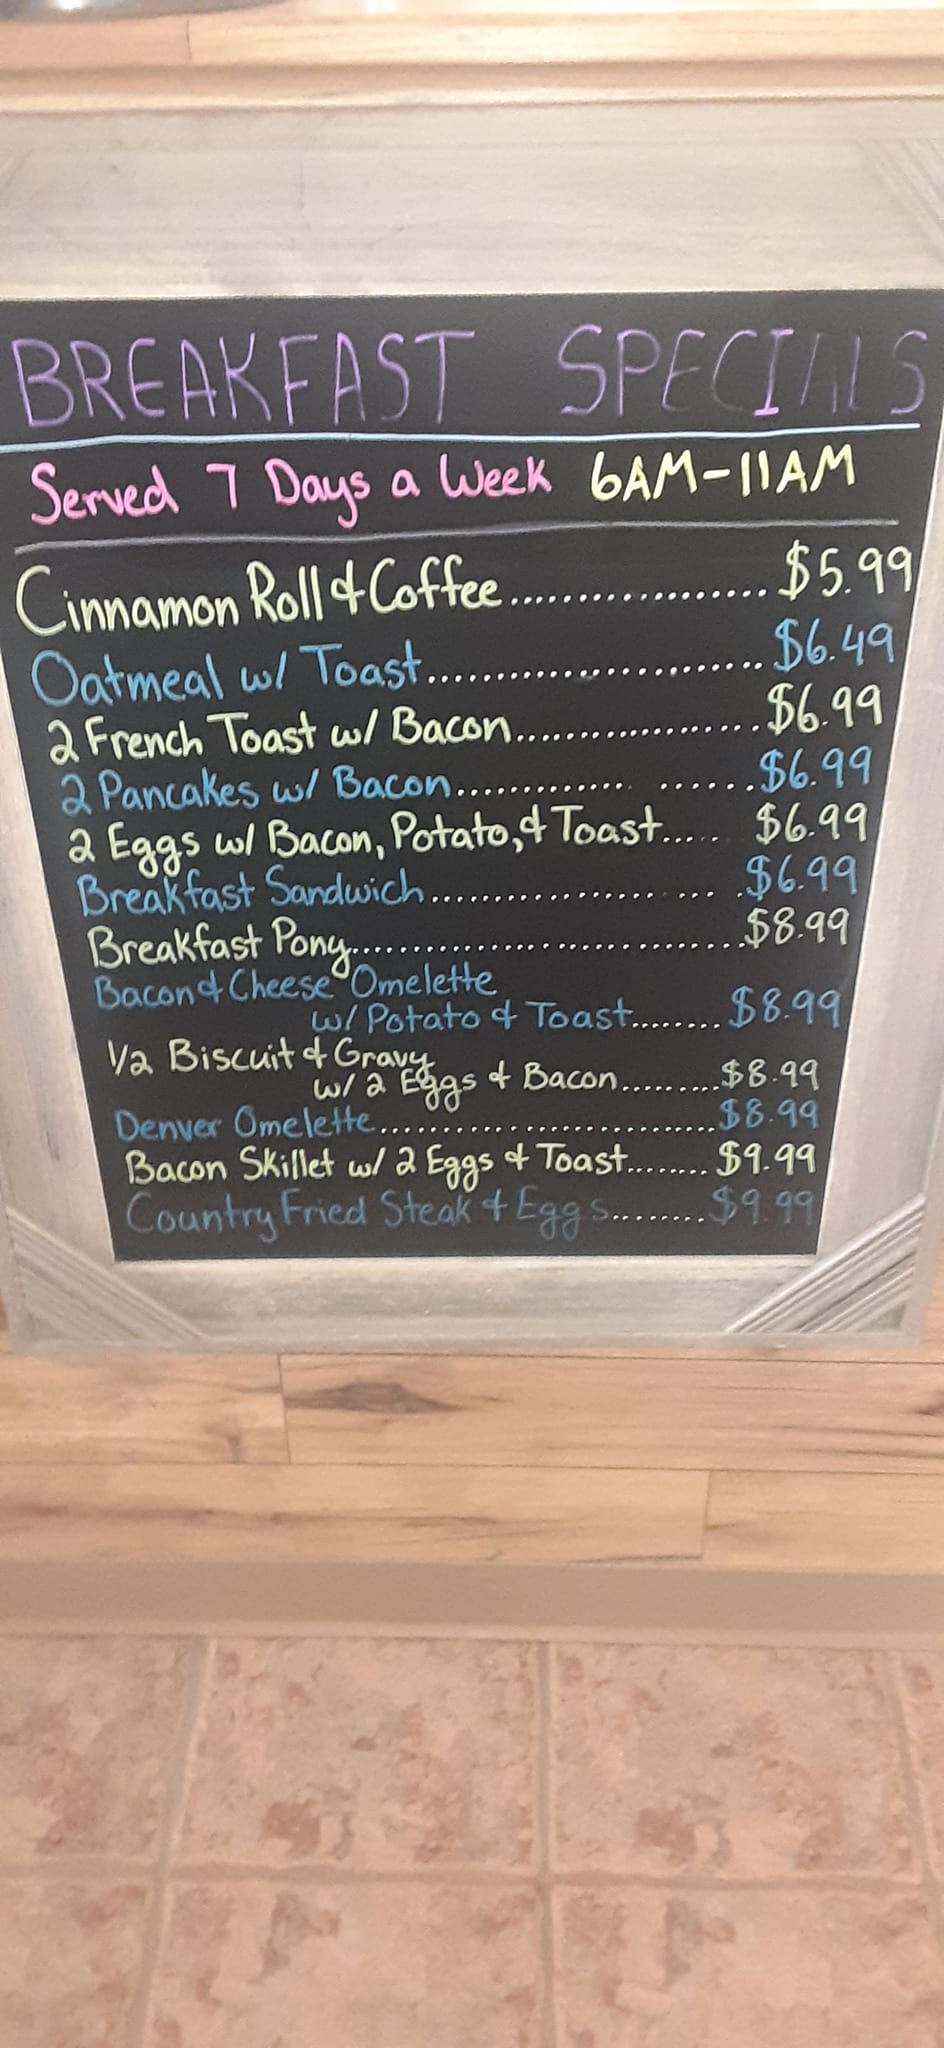 BREAKFAST SPECIALS
Served 7 Days a Week 6AM-11AM
Cinnamon Roll & Coffee.................. $5.99
Oatmeal w/ Toast........................ $6.49
2 French Toast w/ Bacon.................. $6.99
2 Pancakes w/ Bacon............. ...... $6.99
2 Eggs w/ Bacon, Potato, & Toast..... $6.99
Breakfast Sandwich..................... ... . $6.99
Breakfast Pony............................. $8.99
Bacon & Cheese Omelette
w/ Potato & Toast........ $8.99
1/2 Biscuit & Gravy
w/ 2 Eggs & Bacon......... $8.99
Denver Omelette............................ $8.99
Bacon Skillet w/ 2 Eggs & Toast........ $9.99
Country Fried Steak & Eggs........ $9.99